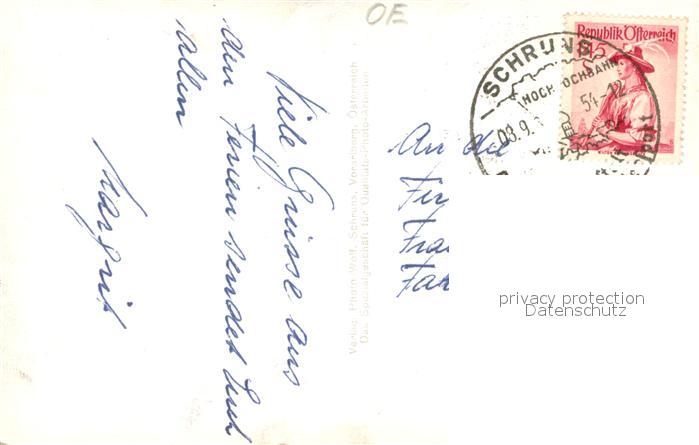 OE
Viele Grüsse aus
den Ferien sendet Euch
allen
Margrit
Verlag Photo Wolf, Schruns, Vorarlberg, Österreich
Das Spezialgeschäft für Qualitäts-Photo-Arbeiten
SCHRUNS
HOCHJOCHBAHN
03.9. 54-12
Republik Österreich
1.45
An die
Fir
Fra
privacy protection
Datenschutz